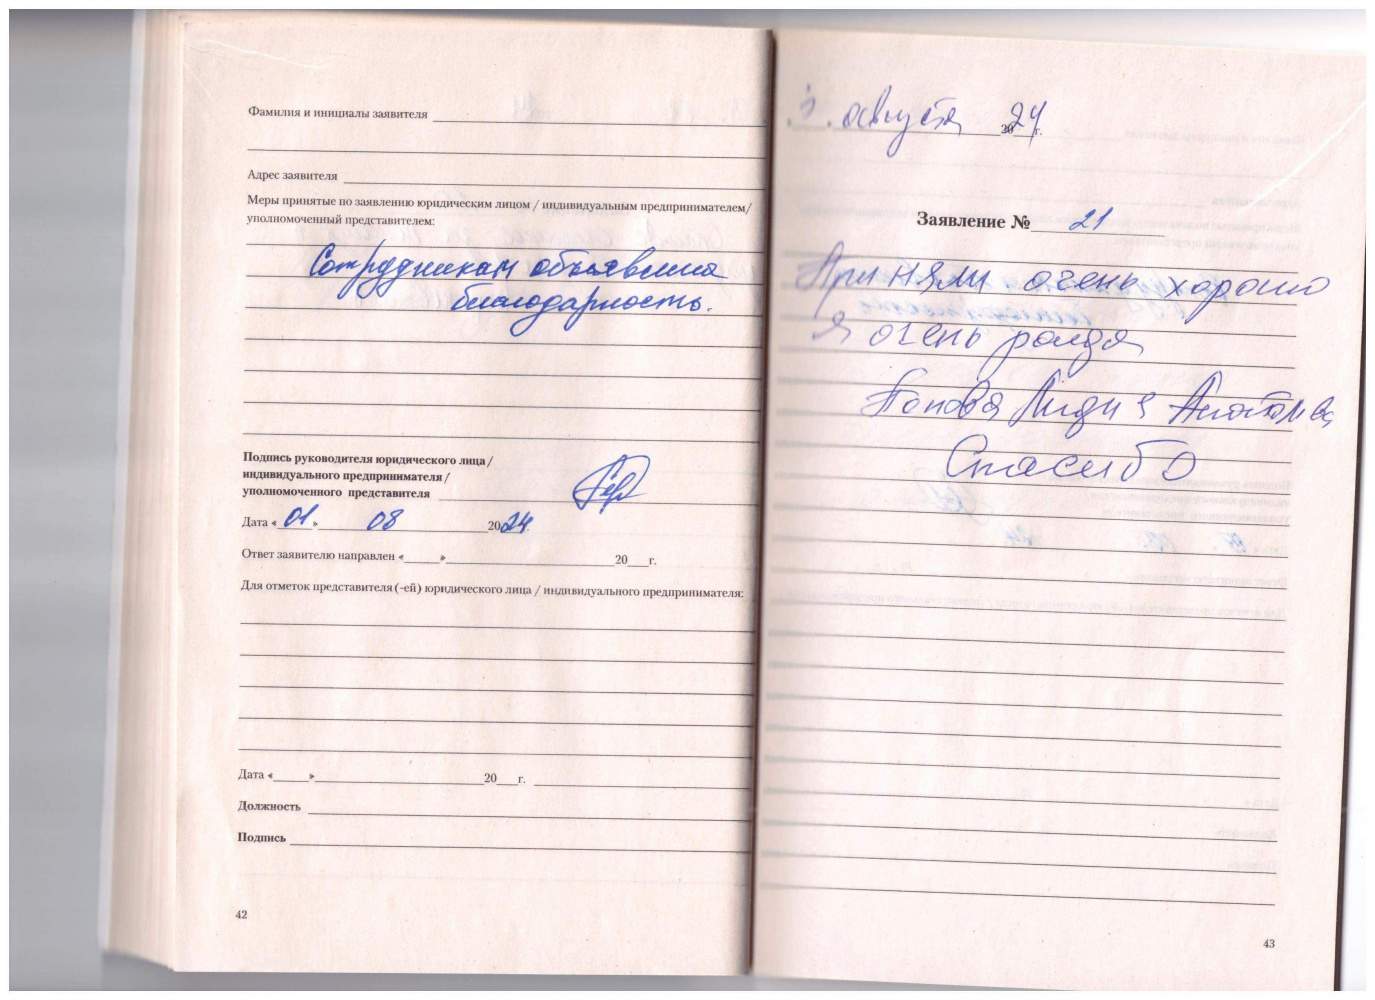 Фамилия и инициалы заявителя
Адрес заявителя
Меры принятые по заявлению юридическим лицом / индивидуальным предпринимателем/
уполномоченный представителем:
Сотрудникам объявлена
благодарность.
Подпись руководителя юридического лица /
индивидуального предпринимателя /
уполномоченного представителя
Дата «01» 08 2024.
Ответ заявителю направлен «____»____ 20__г.
Для отметок представителя (-ей) юридического лица / индивидуального предпринимателя:
Дата «____»____ 20__г.
Должность
Подпись
42
августа 2024г.
Заявление № 21
Приняли очень хорошо
я очень ролда
Попова Лидия
Спасибо
43